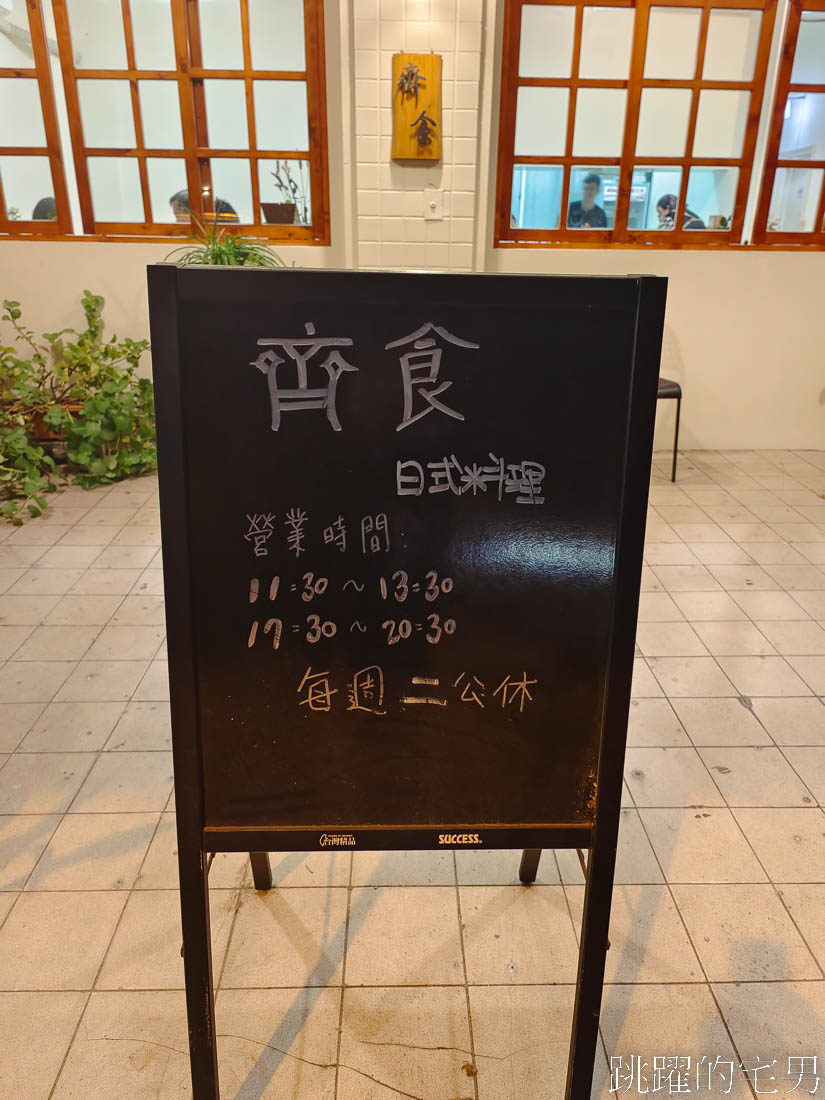 齊
食
齊食
日式料理
營業時間:
11:30 ~ 13:30
17:30 ~ 20:30
每週二公休
台灣精品
SUCCESS®
跳躍的宅男